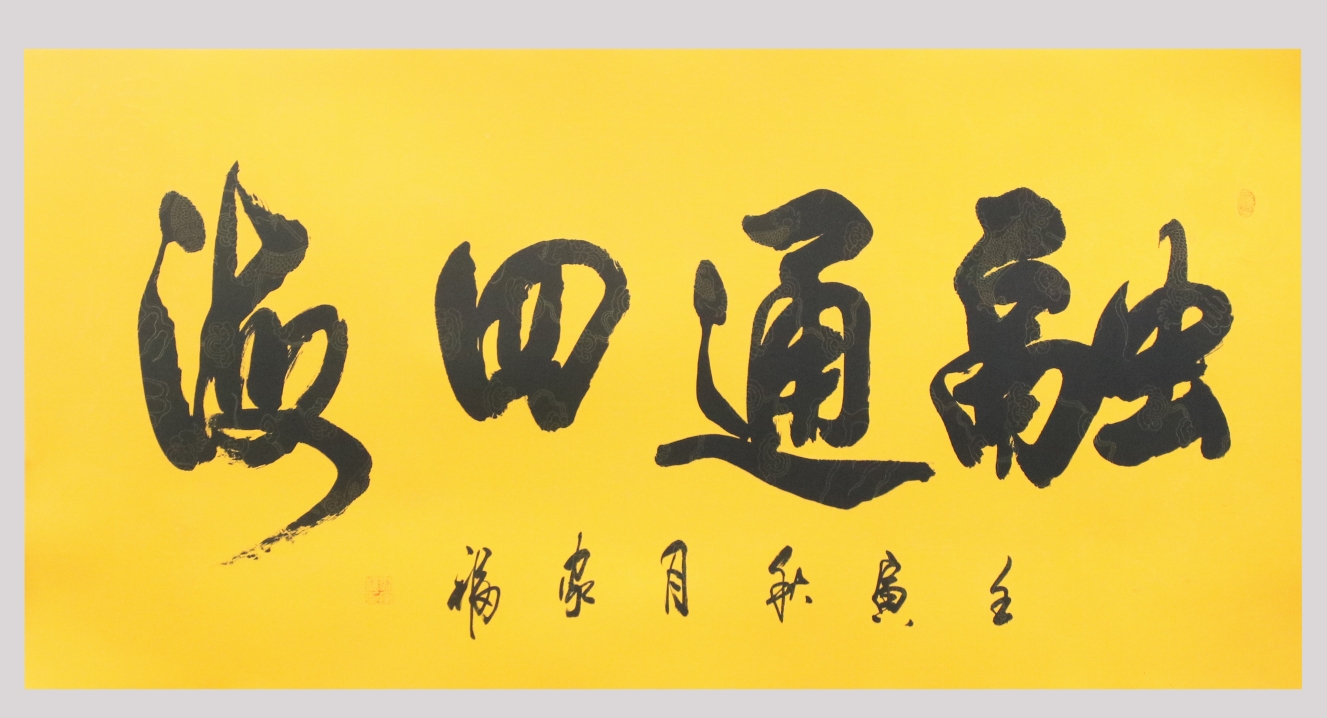 融通四海
壬寅秋月家福